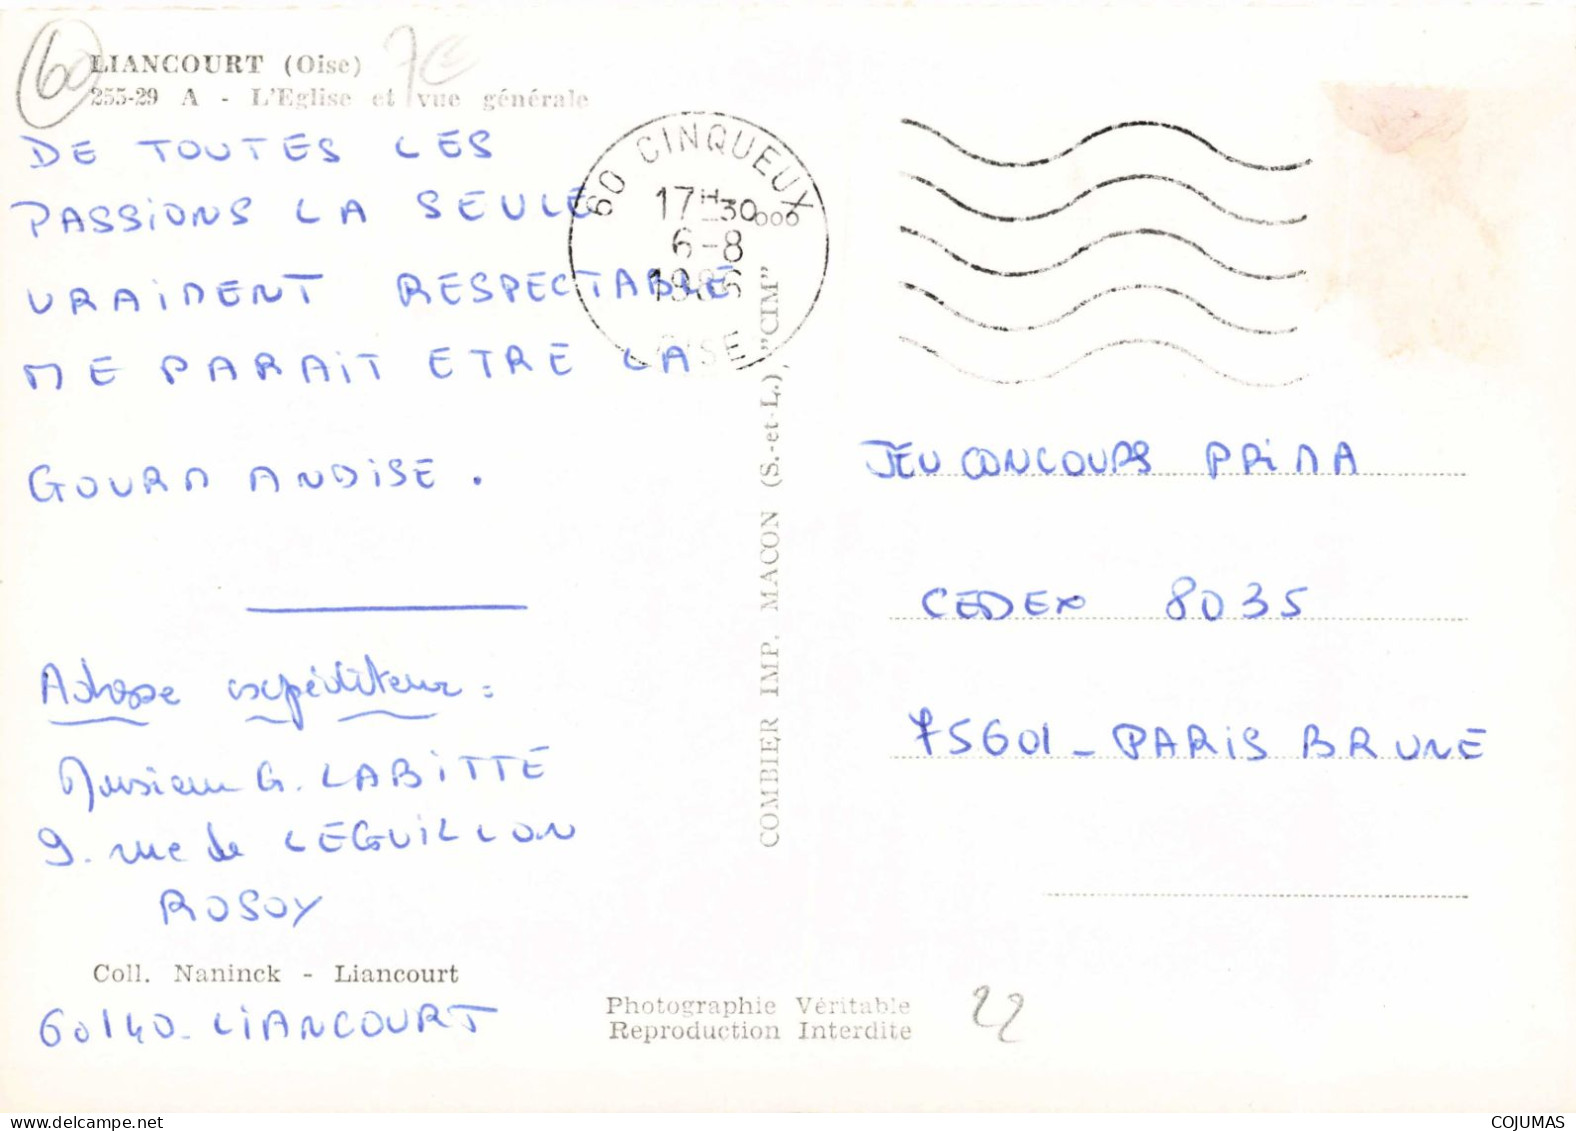 60
7€
LIANCOURT (Oise)
255-29 A - L'Eglise et vue générale
DE TOUTES LES
PASSIONS LA SEULE
VRAIMENT RESPECTABLE
ME PARAIT ETRE LA
GOURMANDISE.
Adresse expéditeur :
Monsieur G. LABITTE
9. rue de LEGUILLON
ROSOY
Coll. Naninck - Liancourt
60140-LIANCOURT
60 CINQUEUX
17H30
6-8
1986
OISE
COMBIER IMP. MACON (S.-et-L.) "CIM"
JEU CONCOURS PRIMA
CEDEX 8035
75601-PARIS BRUNE
Photographie Véritable
Reproduction Interdite
22
www.delcampe.net
COJUMAS